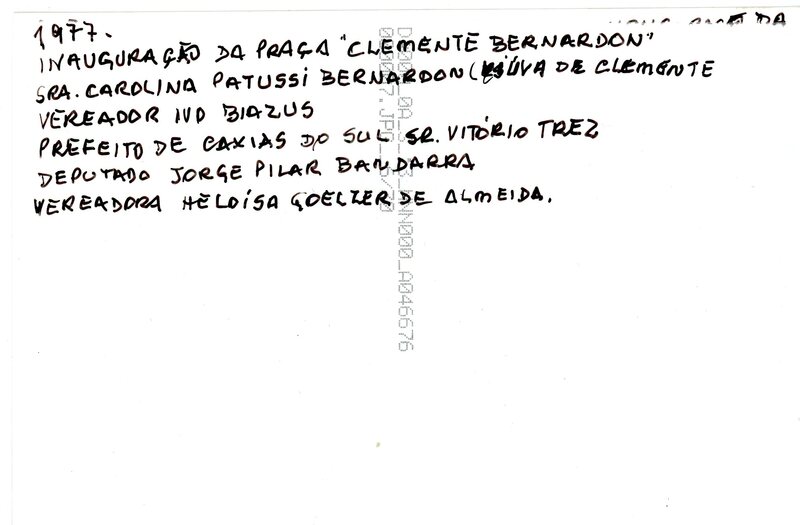 1977.
INAUGURAÇÃO DA PRAÇA "CLEMENTE BERNARDON"
SRA. CAROLINA PATUSSI BERNARDON (VIÚVA DE CLEMENTE
VEREADOR IVO BIAZUS
PREFEITO DE CAXIAS DO SUL SR. VITÓRIO TREZ
DEPUTADO JORGE PILAR BANDARRA
VEREADORA HELOÍSA GOELZER DE ALMEIDA.
DA